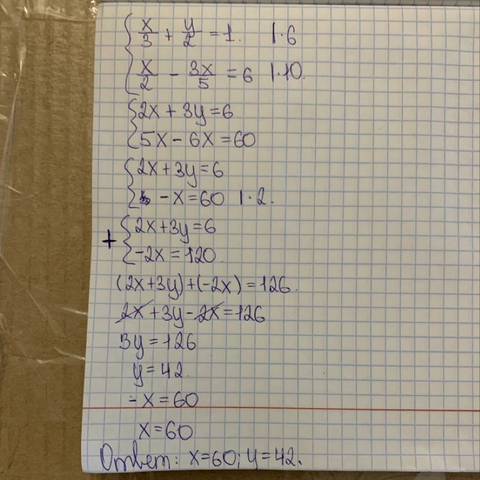 x/3 + y/2 = 1. |·6
x/2 - 3x/5 = 6 |·10
2x + 3y = 6
5x - 6x = 60
2x + 3y = 6
- x = 60 |·2.
+ 2x + 3y = 6
-2x = 120.
(2x + 3y) + (-2x) = 126.
2x + 3y - 2x = 126
3y = 126
y = 42.
- x = 60
x = 60
Ответ: x = 60; y = 42.